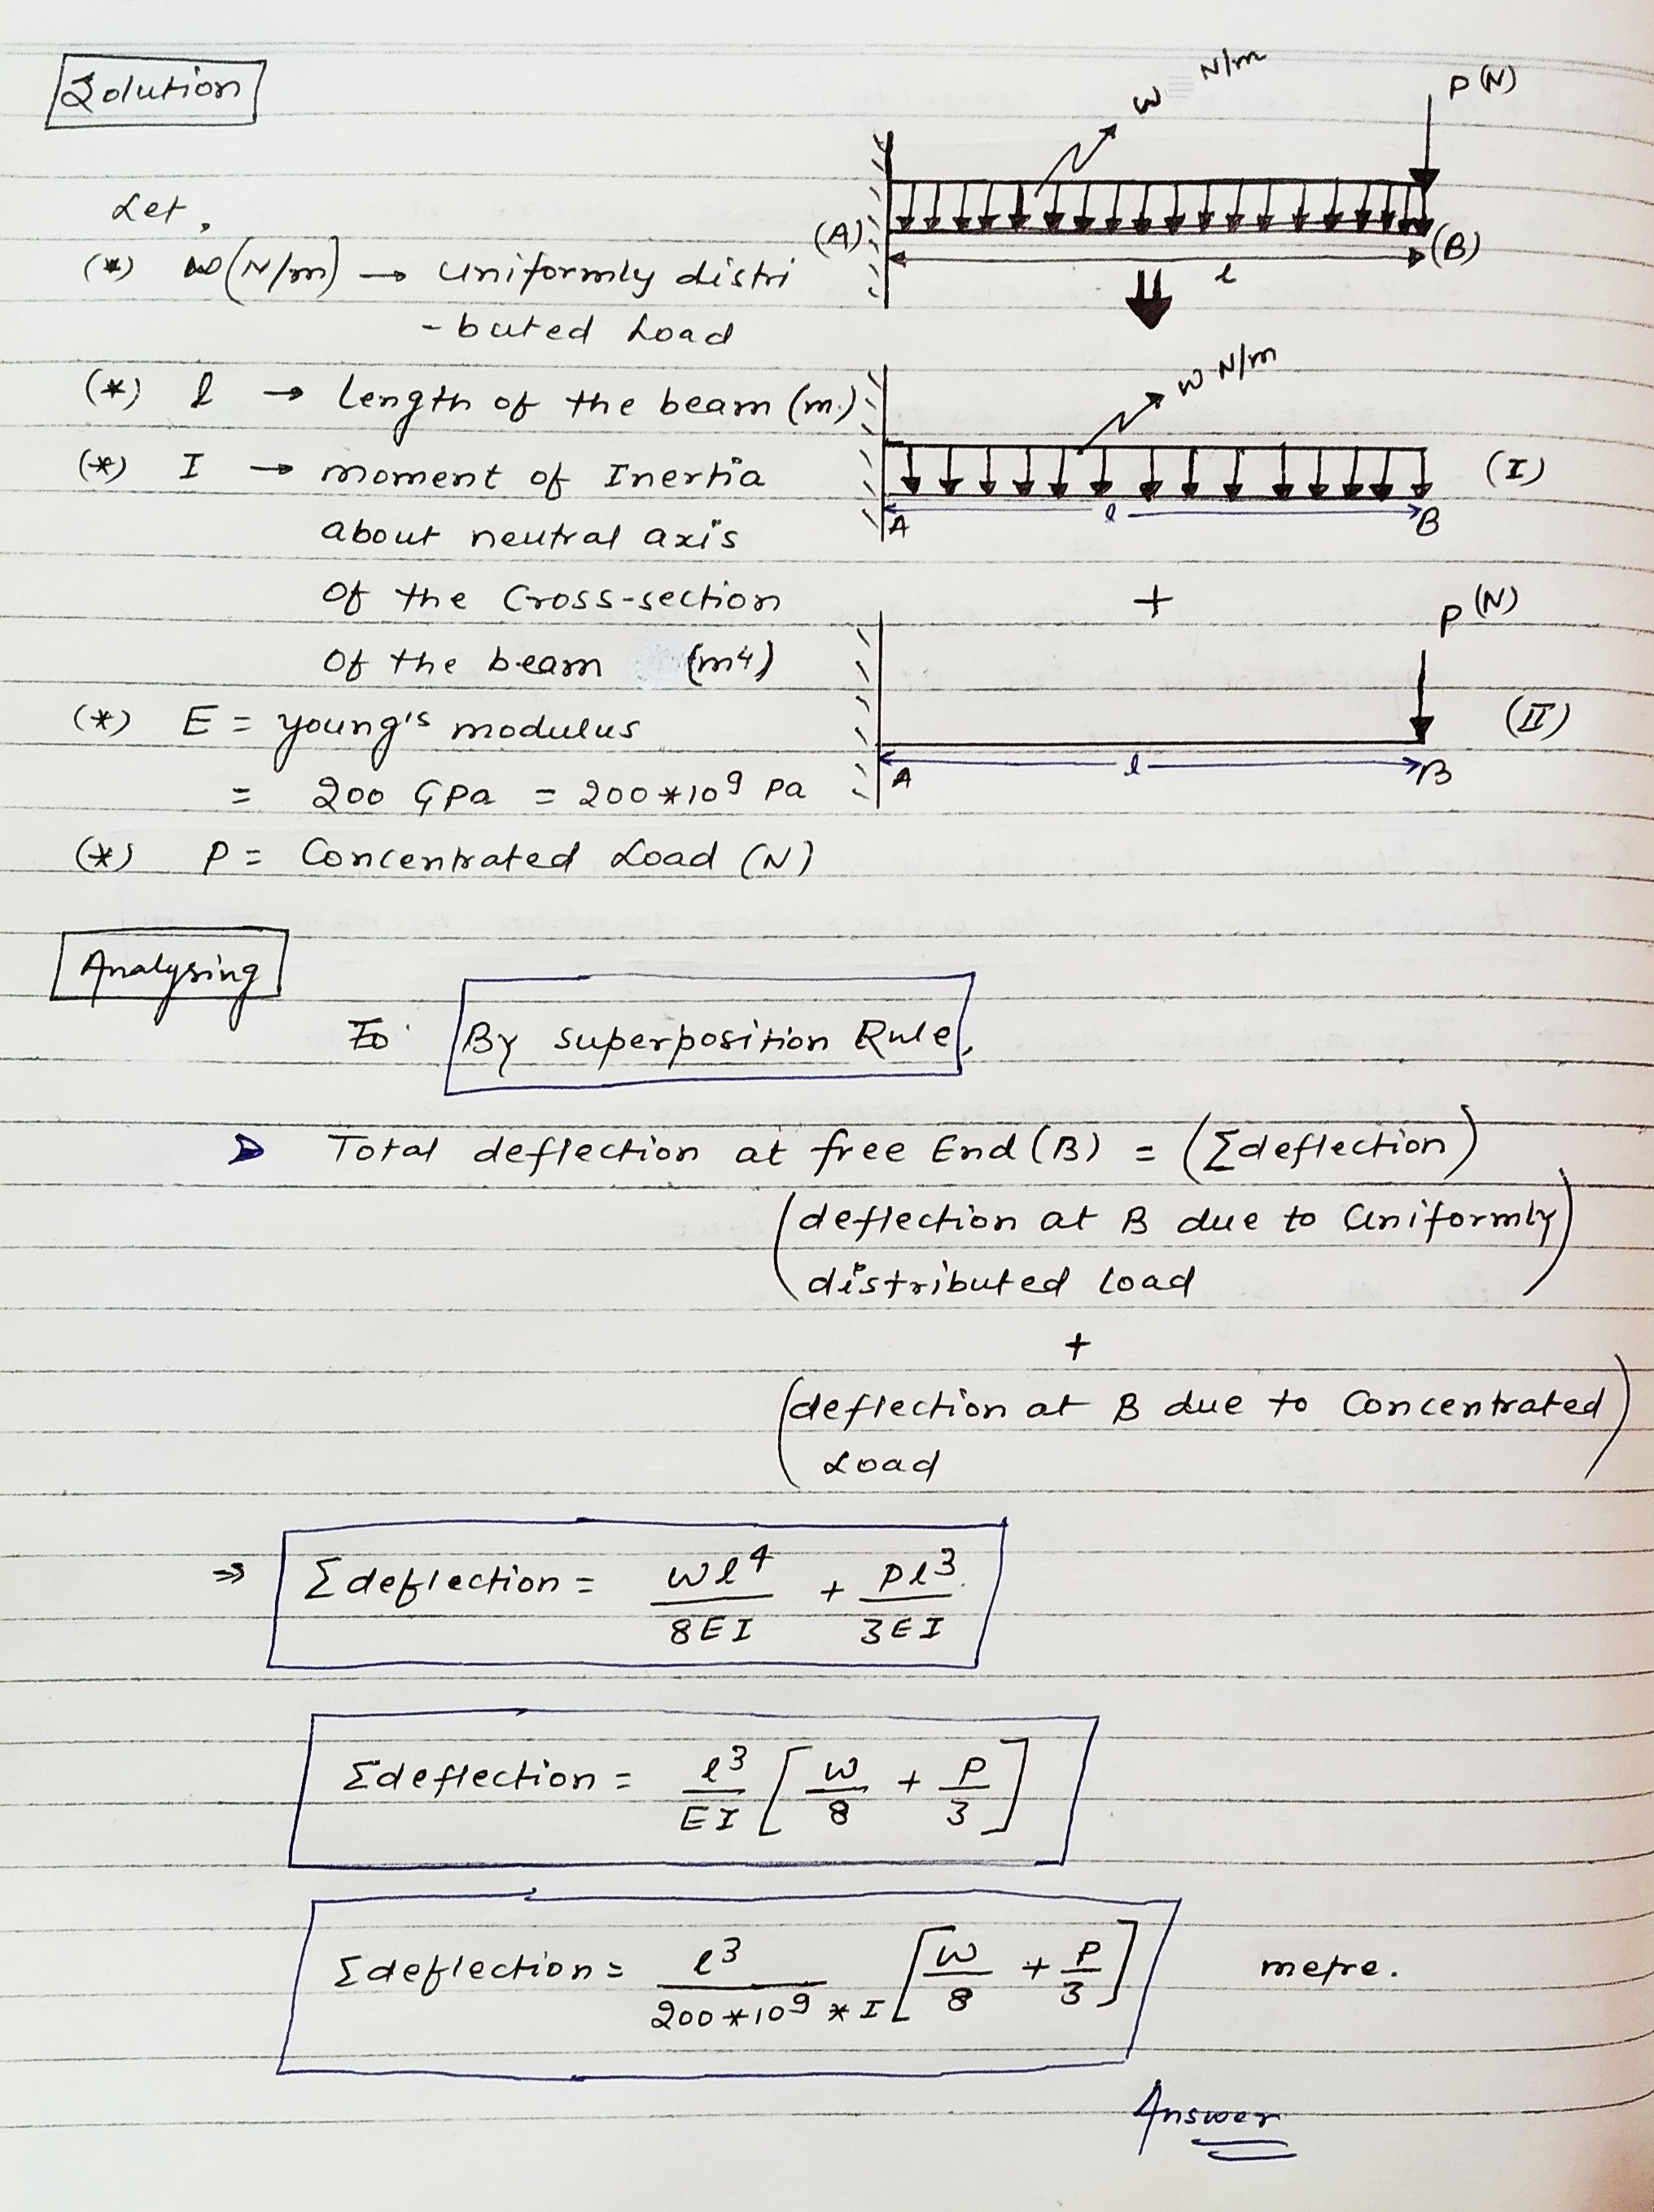 Solution
w N/m
P(N)
Let,
(A)
(B)
l
(*) w(N/m) → Uniformly distri
-buted Load
w N/m
(*) l → Length of the beam (m.)
(*) I → moment of Inertia
(I)
A l B
about neutral axis
of the Cross-section
+
P (N)
of the beam (m⁴)
(*) E = young's modulus
(II)
A l B
= 200 GPa = 200*10⁹ Pa
(*) P = Concentrated Load (N)
Analysing
By superposition Rule,
Total deflection at free End (B) = (Σdeflection)
(deflection at B due to Uniformly
distributed Load)
+
(deflection at B due to Concentrated
Load)
⇒ Σdeflection = wl⁴/8EI + Pl³/3EI
Σdeflection = l³/EI [w/8 + P/3]
Σdeflection = l³/200*10⁹*I [w/8 + P/3] metre.
Answer